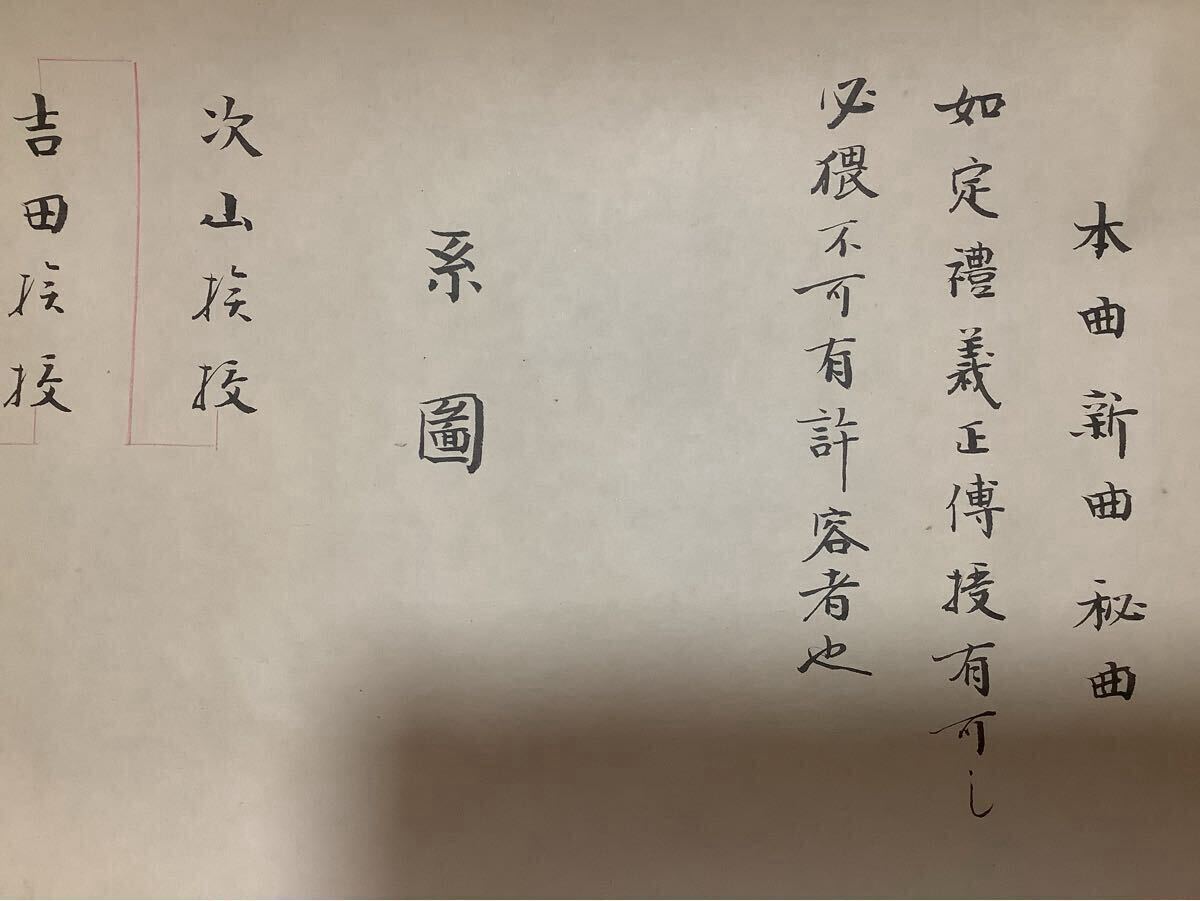 本曲新曲秘曲
如定禮義正傳授有可し
必猥不可有許容者也
系圖
次山挨授
吉田挨授